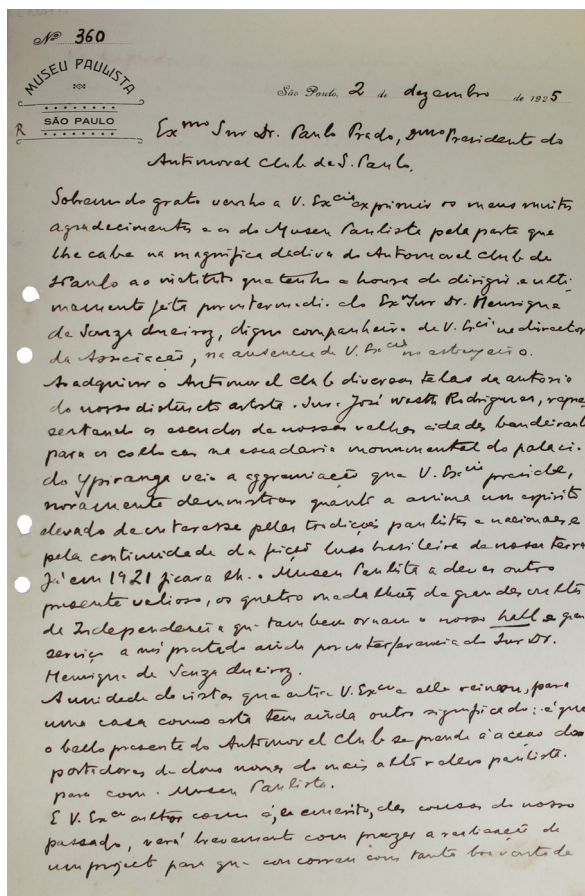 Nº 360
MUSEU PAULISTA
SÃO PAULO
São Paulo, 2 de dezembro de 1925
R
Exmo Snr Dr. Paulo Prado, DmoPresidente do
Automovel Club de S. Paulo.
Sobremodo grato venho a V. Excia exprimir os meus muitos
agradecimentos e os do Museu Paulista pela parte que
lhe cabe na magnifica dadiva do Automovel Club de
S Paulo ao instituto que tenho a honra de dirigir e ulti-
mamente feita por intermedio do Exmo Snr Dr. Henrique
de Souza Queiroz, digno companheiro de V. Excia na directoria
da Associação, na ausencia de V. Excia no estrangeiro.
Ao adquirir o Automovel Club diversas telas da autoria
do nosso distincto artista Snr. José Wasth Rodrigues, repre
sentando os escudos de nossas velhas cidades bandeirantes
para os collocar na escadaria monumental do palacio
do Ypiranga veio a aggremiação que V. Excia preside,
novamente demonstrar quanto a anima um espirito
elevado de interesse pelas tradições paulistas e nacionaes e
pela continuidade da feição luso brasileira de nossa terra
Já em 1921 ficara lhe o Museu Paulista a dever outro
presente valioso, os quatro medalhões de grandes vultos
da Independencia que tambem ornam o nosso hall e que
serviço a nós prestado ainda por interferencia do Snr Dr.
Henrique de Souza Queiroz.
A unidade de vistas que entre V. Excia e elle reinou, para
uma casa como esta tem ainda outro significado: é que
o bello presente do Automovel Club se prende á acção dos
portadores de dous nomes do mais alto relevo paulista.
para com o Museu Paulista.
E V. Excia cultor como é, das cousas do nosso
passado, verá brevemente com prazer a realisação de
um projecto para que concorreu com tanta boa vontade